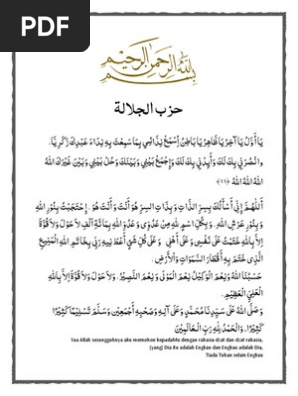 PDF
بسم الله الرحمن الرحيم
حزب الجلالة
يَا أَوَّلُ يَا آخِرُ يَا ظَاهِرُ يَا بَاطِنُ اِسْمَعْ نِدَائِي بِمَا سَمِعْتَ بِهِ نِدَاءَ عَبْدِكَ زَكَرِيَّا
وَانْصُرْنِي بِكَ لَكَ وَأَيِّدْنِي بِكَ لَكَ وَاجْمَعْ بَيْنِي وَبَيْنَكَ وَحُلْ بَيْنِي وَبَيْنَ غَيْرِكَ اللهُ
اللهُ اللهُ اللهُ
اَللّٰهُمَّ إِنِّي أَسْأَلُكَ بِسِرِّ الذَّاتِ وَبِذَاتِ السِّرِّ هُوَ أَنْتَ وَأَنْتَ هُوَ. اِحْتَجَبْتُ بِنُورِ اللهِ
وَبِنُورِ عَرْشِ اللهِ. وَبِكُلِّ اسْمٍ لِلّٰهِ مِنْ عَدُوِّي وَعَدُوِّ اللهِ بِمِائَةِ أَلْفِ لَاحَوْلَ وَلَاقُوَّةَ
إِلَّا بِاللهِ خَتَمْتُ عَلَى نَفْسِي وَعَلَى أَهْلِي وَعَلَى كُلِّ شَيْءٍ أَعْطَانِيهِ رَبِّي بِخَاتَمِ اللهِ الْمَنِيعِ
الَّذِي خَتَمَ بِهِ أَقْطَارَ السَّمٰوَاتِ وَالْأَرْضِ.
حَسْبُنَا اللهُ وَنِعْمَ الْوَكِيْلُ نِعْمَ الْمَوْلَى وَنِعْمَ النَّصِيْرُ. وَلَاحَوْلَ وَلَاقُوَّةَ إِلَّا بِاللهِ
الْعَلِيِّ الْعَظِيْمِ.
وَصَلَّى اللهُ عَلَى سَيِّدِنَا مُحَمَّدٍ وَعَلَى آلِهِ وَصَحْبِهِ أَجْمَعِيْنَ وَسَلَّمَ تَسْلِيْمًا كَثِيْرًا
كَثِيْرًا. وَالْحَمْدُ لِلّٰهِ رَبِّ الْعَالَمِيْنَ
Yaa Allah sesungguhnya aku memohon kepadaMu dengan rahasia dzat dan dzat rahasia,
(yang) Dia itu adalah Engkau dan Engkau adalah Dia,
Tiada Tuhan selain Engkau